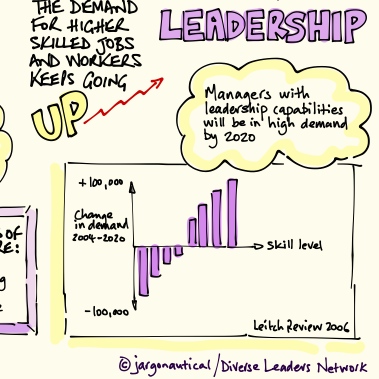 THE DEMAND
FOR HIGHER
SKILLED JOBS
AND WORKERS
KEEPS GOING
UP
LEADERSHIP
Managers with
leadership capabilities
will be in high demand
by 2020
+100,000
Change
in demand
2004-2020
Skill level
-100,000
Leitch Review 2006
OF
RE:
© jargonautical/Diverse Leaders Network